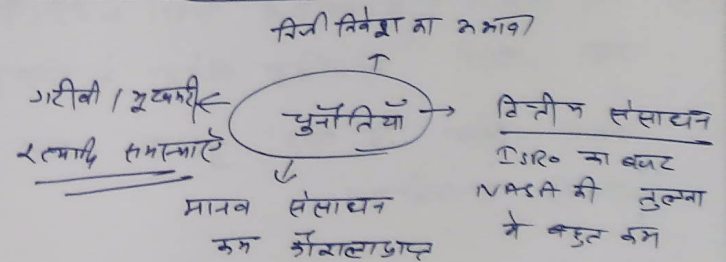 निजी निवेश का अभाव
गरीबी / भूखमरी
इत्यादि समस्याएँ
चुनौतियाँ
वित्तीय संसाधन
ISRO का बजट
NASA की तुलना
मे बहुत कम
मानव संसाधन
कम कौशलप्राप्त